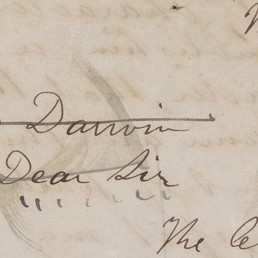 Darwin
Dear Sir
The